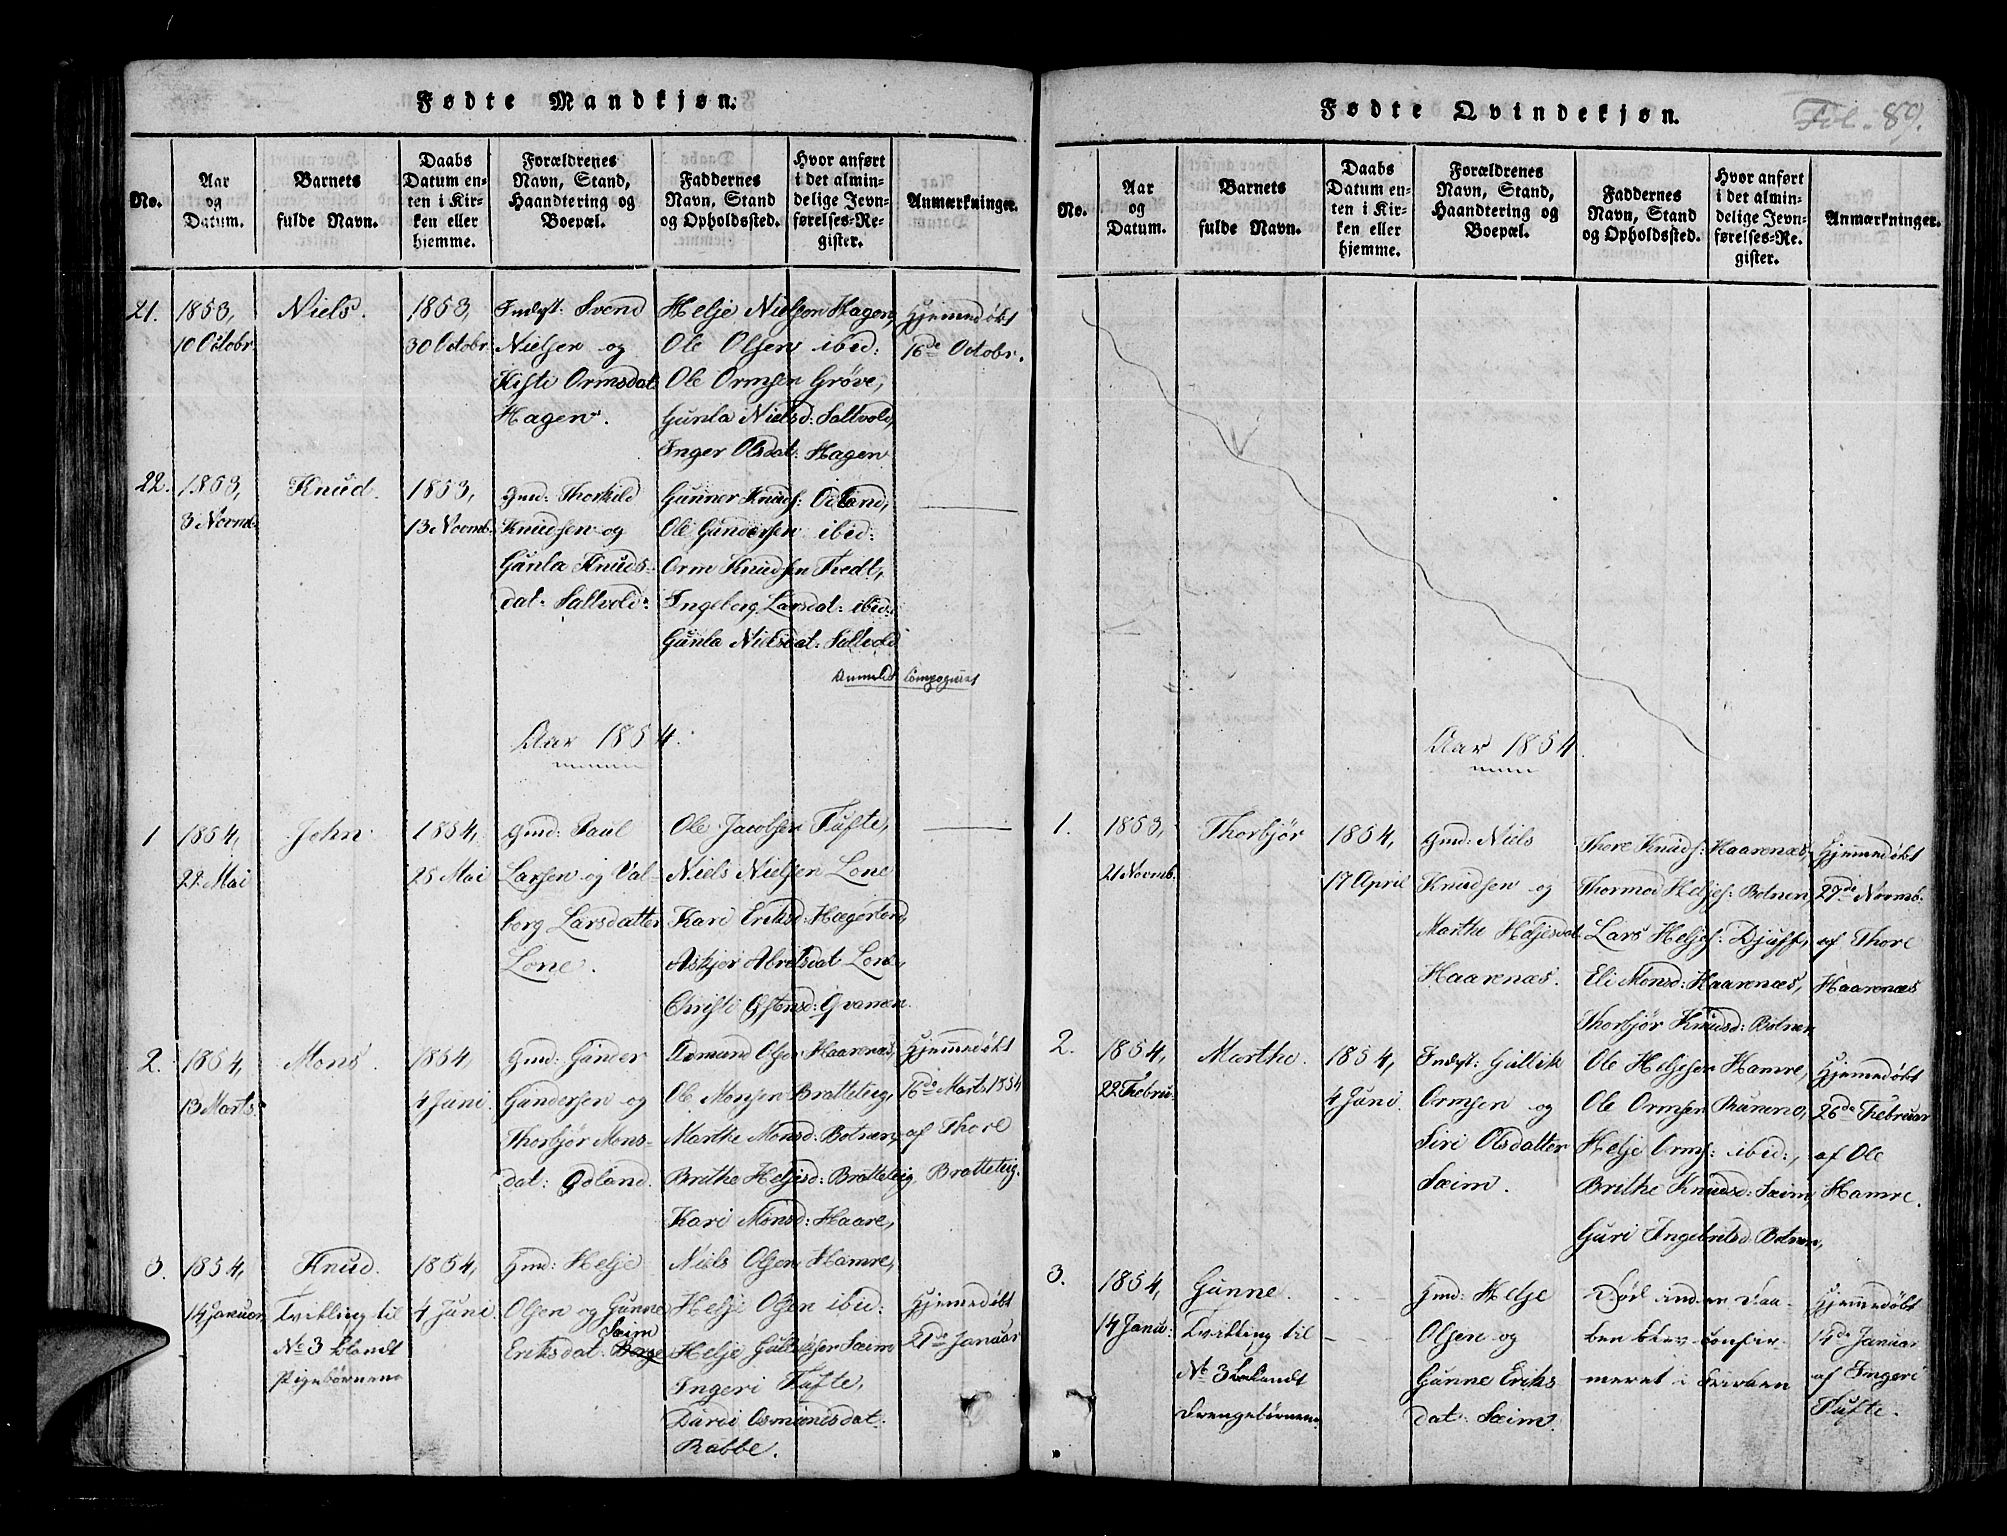 Fødte Mandkjøn.
No.
Aar
og
Datum.
Barnets
fulde Navn.
Daabs
Datum en-
ten i Kir-
ken eller
hjemme.
Forældrenes
Navn, Stand,
Haandtering og
Boepæl.
Faddernes
Navn, Stand
og Opholdssted.
Hvor anført
i det almin-
delige Jevn-
førelses-Re-
gister.
Anmærkninger.
21.
1853,
10 Octobr
Niels.
1853,
30 Octobr
Indst: Svend
Nielsen og
Kisti Ormsdat
Hagen.
Helje Nielsen Hagen,
Ole Olsen ibid:
Ole Ormsen Grøve,
Gunla Nielsd: Saltvold,
Inger Olsdat: Hagen
Hjemmedøbt
16de Octobr.
22.
1853,
3 Novmb.
Knud.
1853,
13 Novmb.
Gmd: Thorkild
Knudsen og
Gunla Knuds-
dat: Saltvold:
Gunner Knuds: Odland,
Ole Gundersen ibid:
Orm Knudsen Tvedt,
Ingeborg Larsdat: ibid:
Gunla Nielsdat: Saltvold
Aar 1854.
1
1854,
22 Mai
John
1854,
25 Mai
Gmd: Paul
Larsen og Val-
borg Larsdatter
Lone.
Ole Jacobsen Tufte,
Niels Nielsen Lone
Kari Eriksd: Hægerland,
Askjer Abretsdat Lone,
Christi Ostensd: Qvanen.
2.
1854,
13 Marts
Mons.
1854,
4 Juni.
Gmd: Gunder
Gundersen og
Thorbjør Mons-
dat: Odland.
Osmund Olsen Haarenæs,
Ole Monsen Bratteteig,
Marthe Monsd: Botnen,
Brithe Heljesd: Bratteteig
Kari Monsd: Haare,
Hjemmedøbt
16de Marts 1854
af Thore
Bratteteig.
3.
1854,
14 Januar
Knud.
Tvilling til
No 3 blandt
Pigebørnene
1854,
4 Juni
Gmd: Helje
Olsen og Gunne
Saim
Eriksdat: Berge
Niels Olsen Hamre,
Helje Olsen ibid:
Helje Gulliksen Saim
Ingeri Tufte,
Barbi Osmundsdat.
Rabbe.
Hjemmedøbt
21de Januar
Fødte Qvindekjøn.
Fol. 89.
No.
Aar
og
Datum.
Barnets
fulde Navn.
Daabs
Datum en-
ten i Kir-
ken eller
hjemme.
Forældrenes
Navn, Stand,
Haandtering og
Boepæl.
Faddernes
Navn, Stand
og Opholdssted.
Hvor anført
i det almin-
delige Jevn-
førelses-Re-
gister.
Anmærkninger.
Aar 1854.
1.
1853,
21 Novmb.
Thorbjør
1854,
17 April
Gmd: Niels
Knudsen og
Marthe Heljesdat
Haarenæs.
Thore Knuds: Haarenæs,
Thormod Heljes: Botnen,
Lars Heljes: Djuff,
Eli Monsd: Haarenæs,
Thorbjør Knudsd: Botnen
Hjemmedøbt
27de Novmb.
af Thore
Haarenæs
2.
1854,
22 Febru.
Marthe.
1854,
4 Juni.
Indst: Gullik
Ormsen og
Siri Olsdatter
Sæim.
Ole Heljesen Hamre,
Ole Ormsen Runene,
Helje Orms: ibid:,
Brithe Knudsd: Sæim,
Guri Ingebritsd: Botnen,
Hjemmedøbt
26de Februar
af Ole
Hamre.
3.
1854,
14 Janu.
Gunne.
Tvilling til
No 3 blandt
Drengebørnene
Gmd: Helje
Olsen og
Gunne Eriks
dat: Sæim.
Død inden Daa-
ben blev confir-
meret i Kirken
Hjemmedøbt
14de Januar
af Ingeri
Tufte.